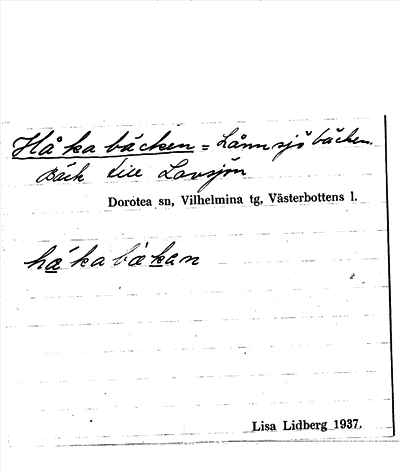 Håkabäcken = Lånnsjöbäcken.
Bäck till Lavsjön
Dorotea sn, Vilhelmina tg, Västerbottens l.
hǽkabækan
Lisa Lidberg 1937.